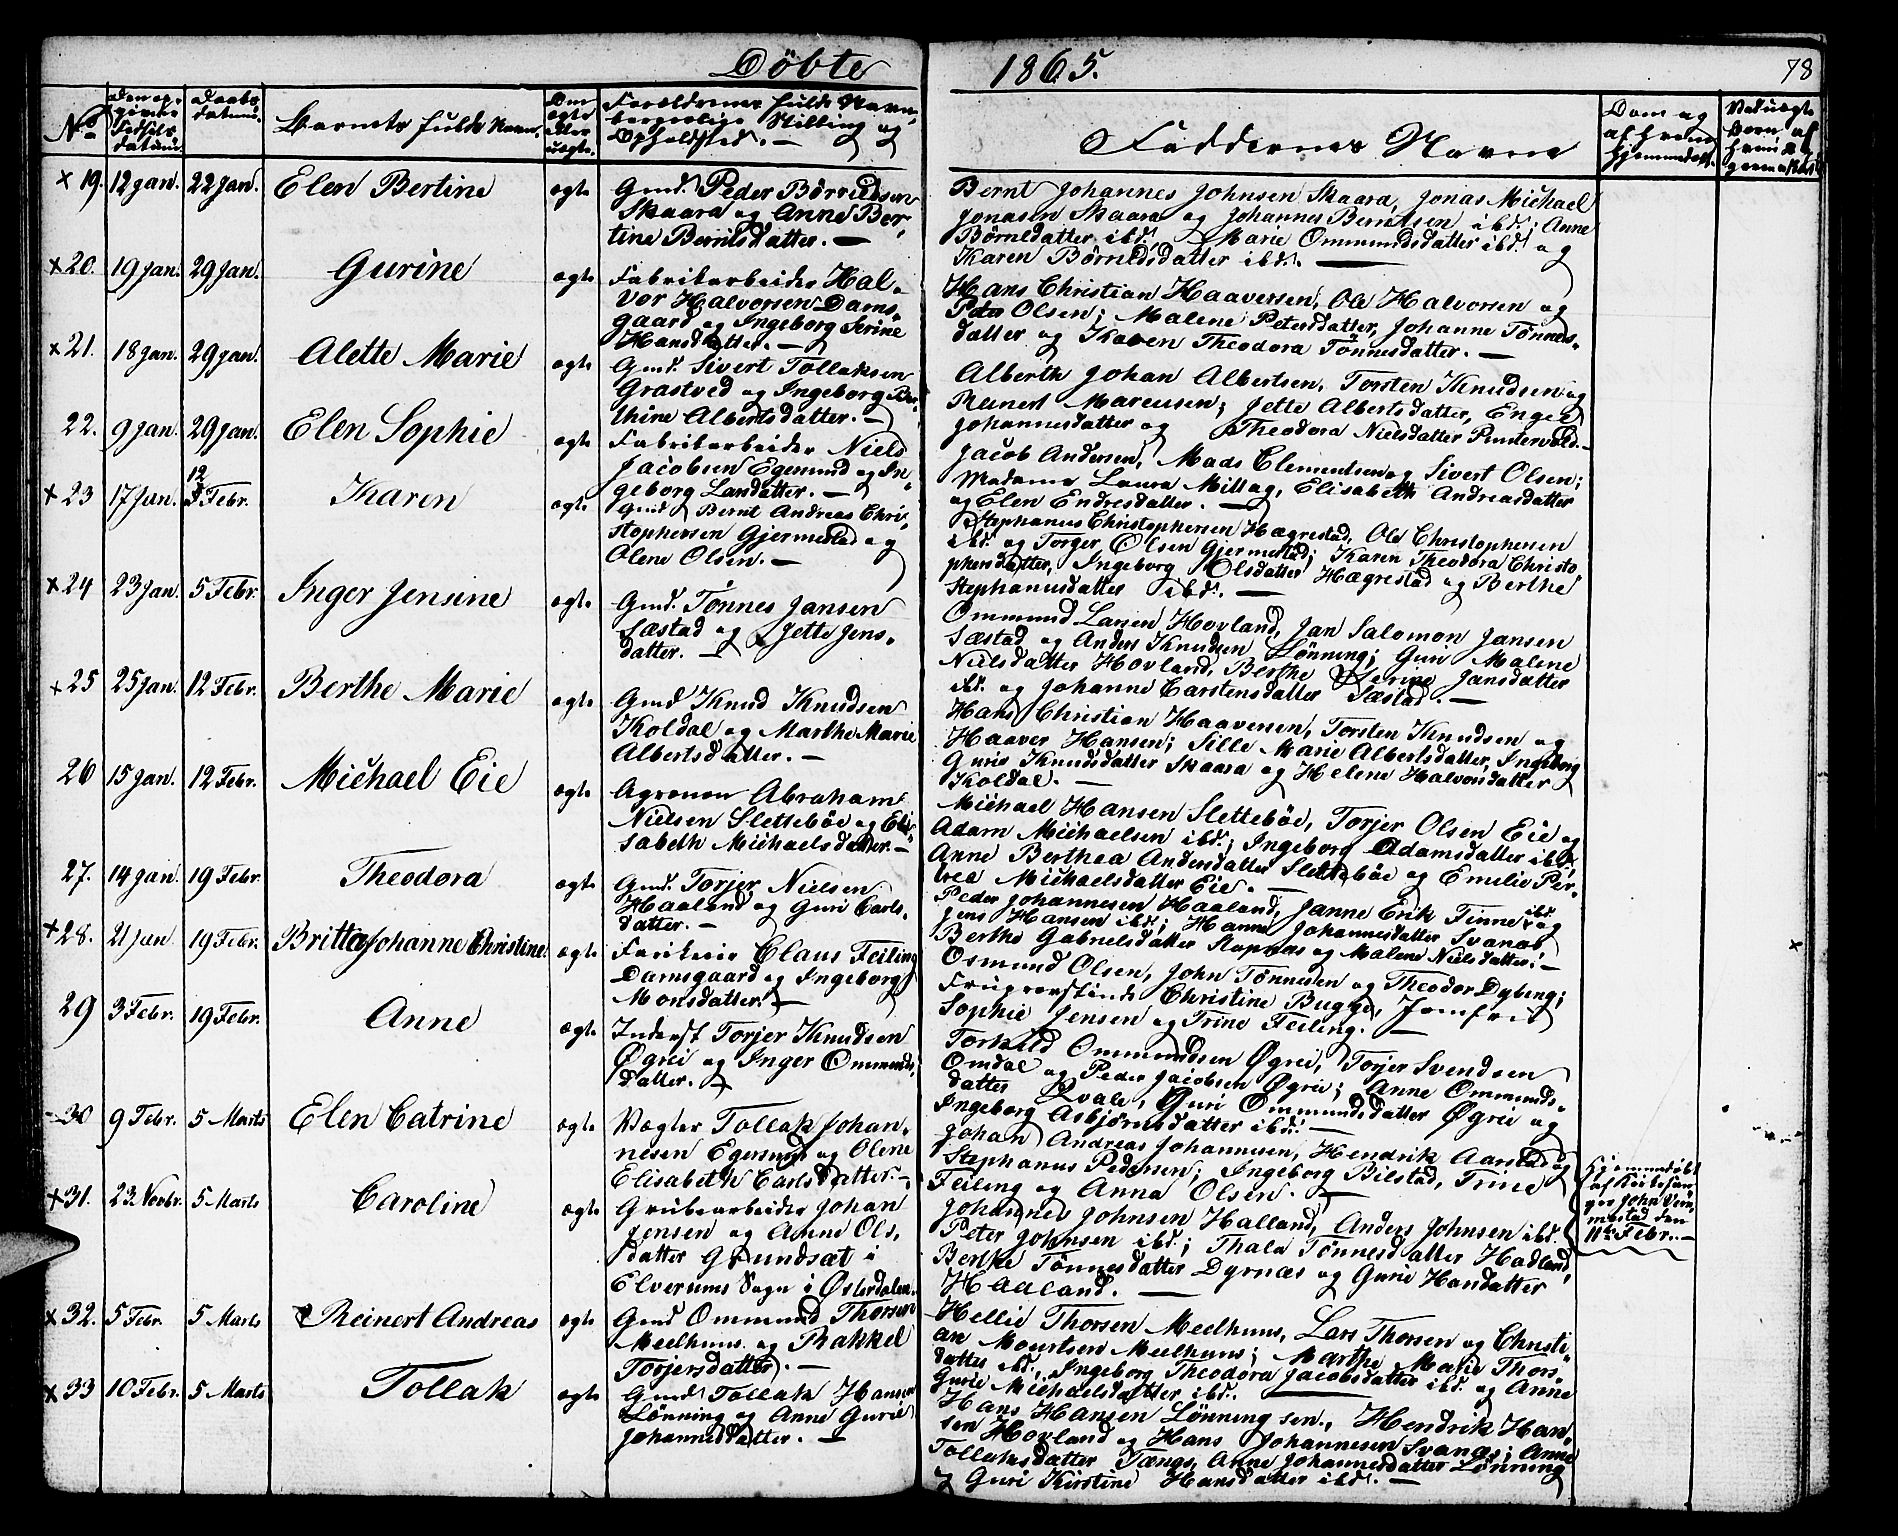 Döbte
1865.
78
No
Den op-
givne
Fødsels
datum
Daabs
datum.
Barnets fulde Navn.
Om
ægte
eller
uægte.
Forældrenes fulde Navn,
borgerlige Stilling og
Opholdsted. —
Faddernes Navne
Dom og
af hvem
hjemmedøbt.
× 19. 12 Jan. 22 Jan. Elen Bertine ægte
Gmd. Peder Börresen
Skaara og Anne Ber-
tine Berntsdatter. —
Bernt Johannes Johnsen Skaara, Jonas Michael
Jonasen Skaara og Johannes Berntsen ibd.; Anne
Börnedatter ibd., Marie Ommundsdatter ibd. og
Karen Börnedsdatter ibd. —
× 20. 19 Jan. 29 Jan. Gurine ægte
Fabrikarbeider Hal-
vor Halvorsen Dams-
gaard og Ingeborg Serine
Hansdatter. —
Hans Christian Haaversen, Ole Halvorsen og
Peter Olsen; Malene Petersdatter, Johanne Tönnes-
datter og Karen Theodora Tönnesdatter. —
× 21. 18 Jan. 29 Jan. Alette Marie ægte
Gmd. Sivert Tollaksen
Grastved og Ingeborg Ber-
thine Albertsdatter. —
Alberth Johan Albertsen, Torsten Knudsen og
Reinert Mareusen; Jette Albertsdatter, Engel
Johannesdatter og Theodora Nielsdatter Puntervold. —
22. 9 Jan. 29 Jan. Elen Sophie ægte
Fabrikarbeider Niels
Jacobsen Egersund og In-
geborg Larsdatter. —
Jacob Andersen, Mads Clemendsen og Sivert Olsen;
Madame Laura Millag, Elisabeth Andreasdatter
og Elen Endresdatter. —
× 23 17 Jan. 12 Febr. Karen ægte
Gmd Bernt Andreas Chri-
stophersen Gjermestad og
Olene Olsen. —
Stephanus Christophersen Hægrestad, Ole Christophersen
ibd. og Torger Olsen Gjermestad; Karen Theodora Christo
phersdatter, Ingeborg Olsdatter Hægrestad og Berthe
Stephanusdatter ibd. —
× 24 23 Jan. 5 Febr. Inger Jensine ægte
Gmd. Tönnes Jansen
Sæstad og Jette Jens-
datter. —
Ommund Larsen Hovland, Jan Salomon Jansen
Sæstad og Anders Knudsen Lönning; Guri Malene
Nielsdatter Hovland, Berthe Serine Jansdatter
ibd. og Johanne Carstensdatter Sæstad. —
× 25 25 Jan. 12 Febr. Berthe Marie ægte
Gmd Knud Knudsen
Koldal og Marthe Marie
Albertsdatter. —
Hans Christian Haaversen, Torsten Knudsen og
Haaver Hansen; Sille Marie Albertsdatter, Ingeborg
Gurie Knudsdatter Skaara og Helene Halvorsdatter
Koldal. —
26 15 Jan. 12 Febr. Michael Eie ægte
Agronom Abraham
Nielsen Slettebøe og Eli-
sabeth Michaelsdatter. —
Michael Hansen Slettebøe, Torjer Olsen Eie og
Adam Michaelsen ibd.; Ingeborg Adamsdatter ibd.,
Anne Berthea Andersdatter Slettebøe og Emelie Per-
trea Michaelsdatter Eie. —
27. 14 Jan. 19 Febr. Theodora ægte
Gmd. Torjer Nielsen
Haaland og Guri Carls-
datter. —
Peder Johannesen Haaland, Janne Erik Tinne ibd. og
Jens Hansen ibd.; Hanne Johannesdatter Svanæs
Berthe Gabrielsdatter Ropnæs og Malene Nielsdatter. —
× 28. 21 Jan 19 Febr. Britta Johanne Christine ægte
Claus Feiling
Damsgaard og Ingeborg
Monsdatter. —
Osmund Olsen, John Tönnesen og Theodor Dybing;
Christine Bugge, Jomfru
Sophie Jensen og Trine Feiling. —
29 3 Febr. 19 Febr. Anne ægte
Inderst Torjer Knudsen
Øgrei og Inger Ommunds-
datter. —
Torkild Ommundsen Øgrei, Torjer Svendsen
Omdal og Peder Jacobsen Øgrei; Anne Ommunds-
datter Qvale, Guri Ommundsdatter Øgrei og
Ingeborg Asbjørnsdatter ibd. —
30 9 Febr. 5 Marts Elen Catrine ægte
Vægter Tollak Johan-
nesen Egersund og Olene
Elisabeth Carlsdatter. —
Johan Andreas Johannesen, Hendrik Aarstad og
Stephanus Pedersen; Ingeborg Bilstad, Trine
Feiling og Anna Olsen. —
× 31. 23 Novbr. 5 Marts Caroline ægte
Grubearbeider Johan
Jensen og Anne Ols-
datter Grundsæt i
Elverums Sogn i Østerdalen.
Johannes Johnsen Halland, Anders Johnsen ibd.
Peter Johnsen ibd.; Thala Tönnesdatter Hadland,
Berthe Tönnesdatter Dyrnæs og Gurie Hansdatter
Haaland. —
Hjemmedøbt
af Kirkesan-
ger John Vem-
mestad den
11te Febr. —
× 32. 5 Febr. 5 Marts Reinert Andreas ægte
Gmd Ommund Thorsen
Meelhuus og Rakkel
Torjersdatter. —
Hellie Thorsen Meelhuus, Lars Thorsen og Christi-
an Mouritsen Meelhuus; Marthe Marie Thors-
datter ibd., Ingeborg Theodora Jacobsdatter ibd. og Anne
Gurie Michaelsdatter ibd. —
× 33 10 Febr. 5 Marts Tollak ægte
Gmd Tollak Hansen
Lönning og Anne Gurie
Johannesdatter. —
Hans Hansen Lönning sen., Hendrik Han-
sen Hovland og Hans Johannesen Svanæs; Anne
Tollaksdatter Tængs, Anne Johannesdatter Lönning
og Guri Kirstine Hansdatter ibd. —